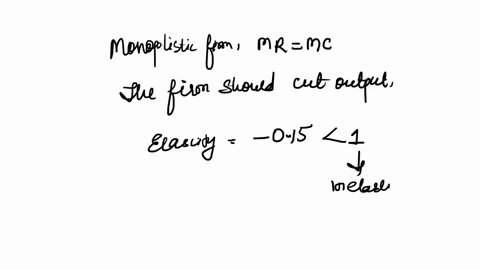 Monoplistic firm, MR=MC
The firm should cut output,
Elascity = -0.15 < 1
↓
inelas